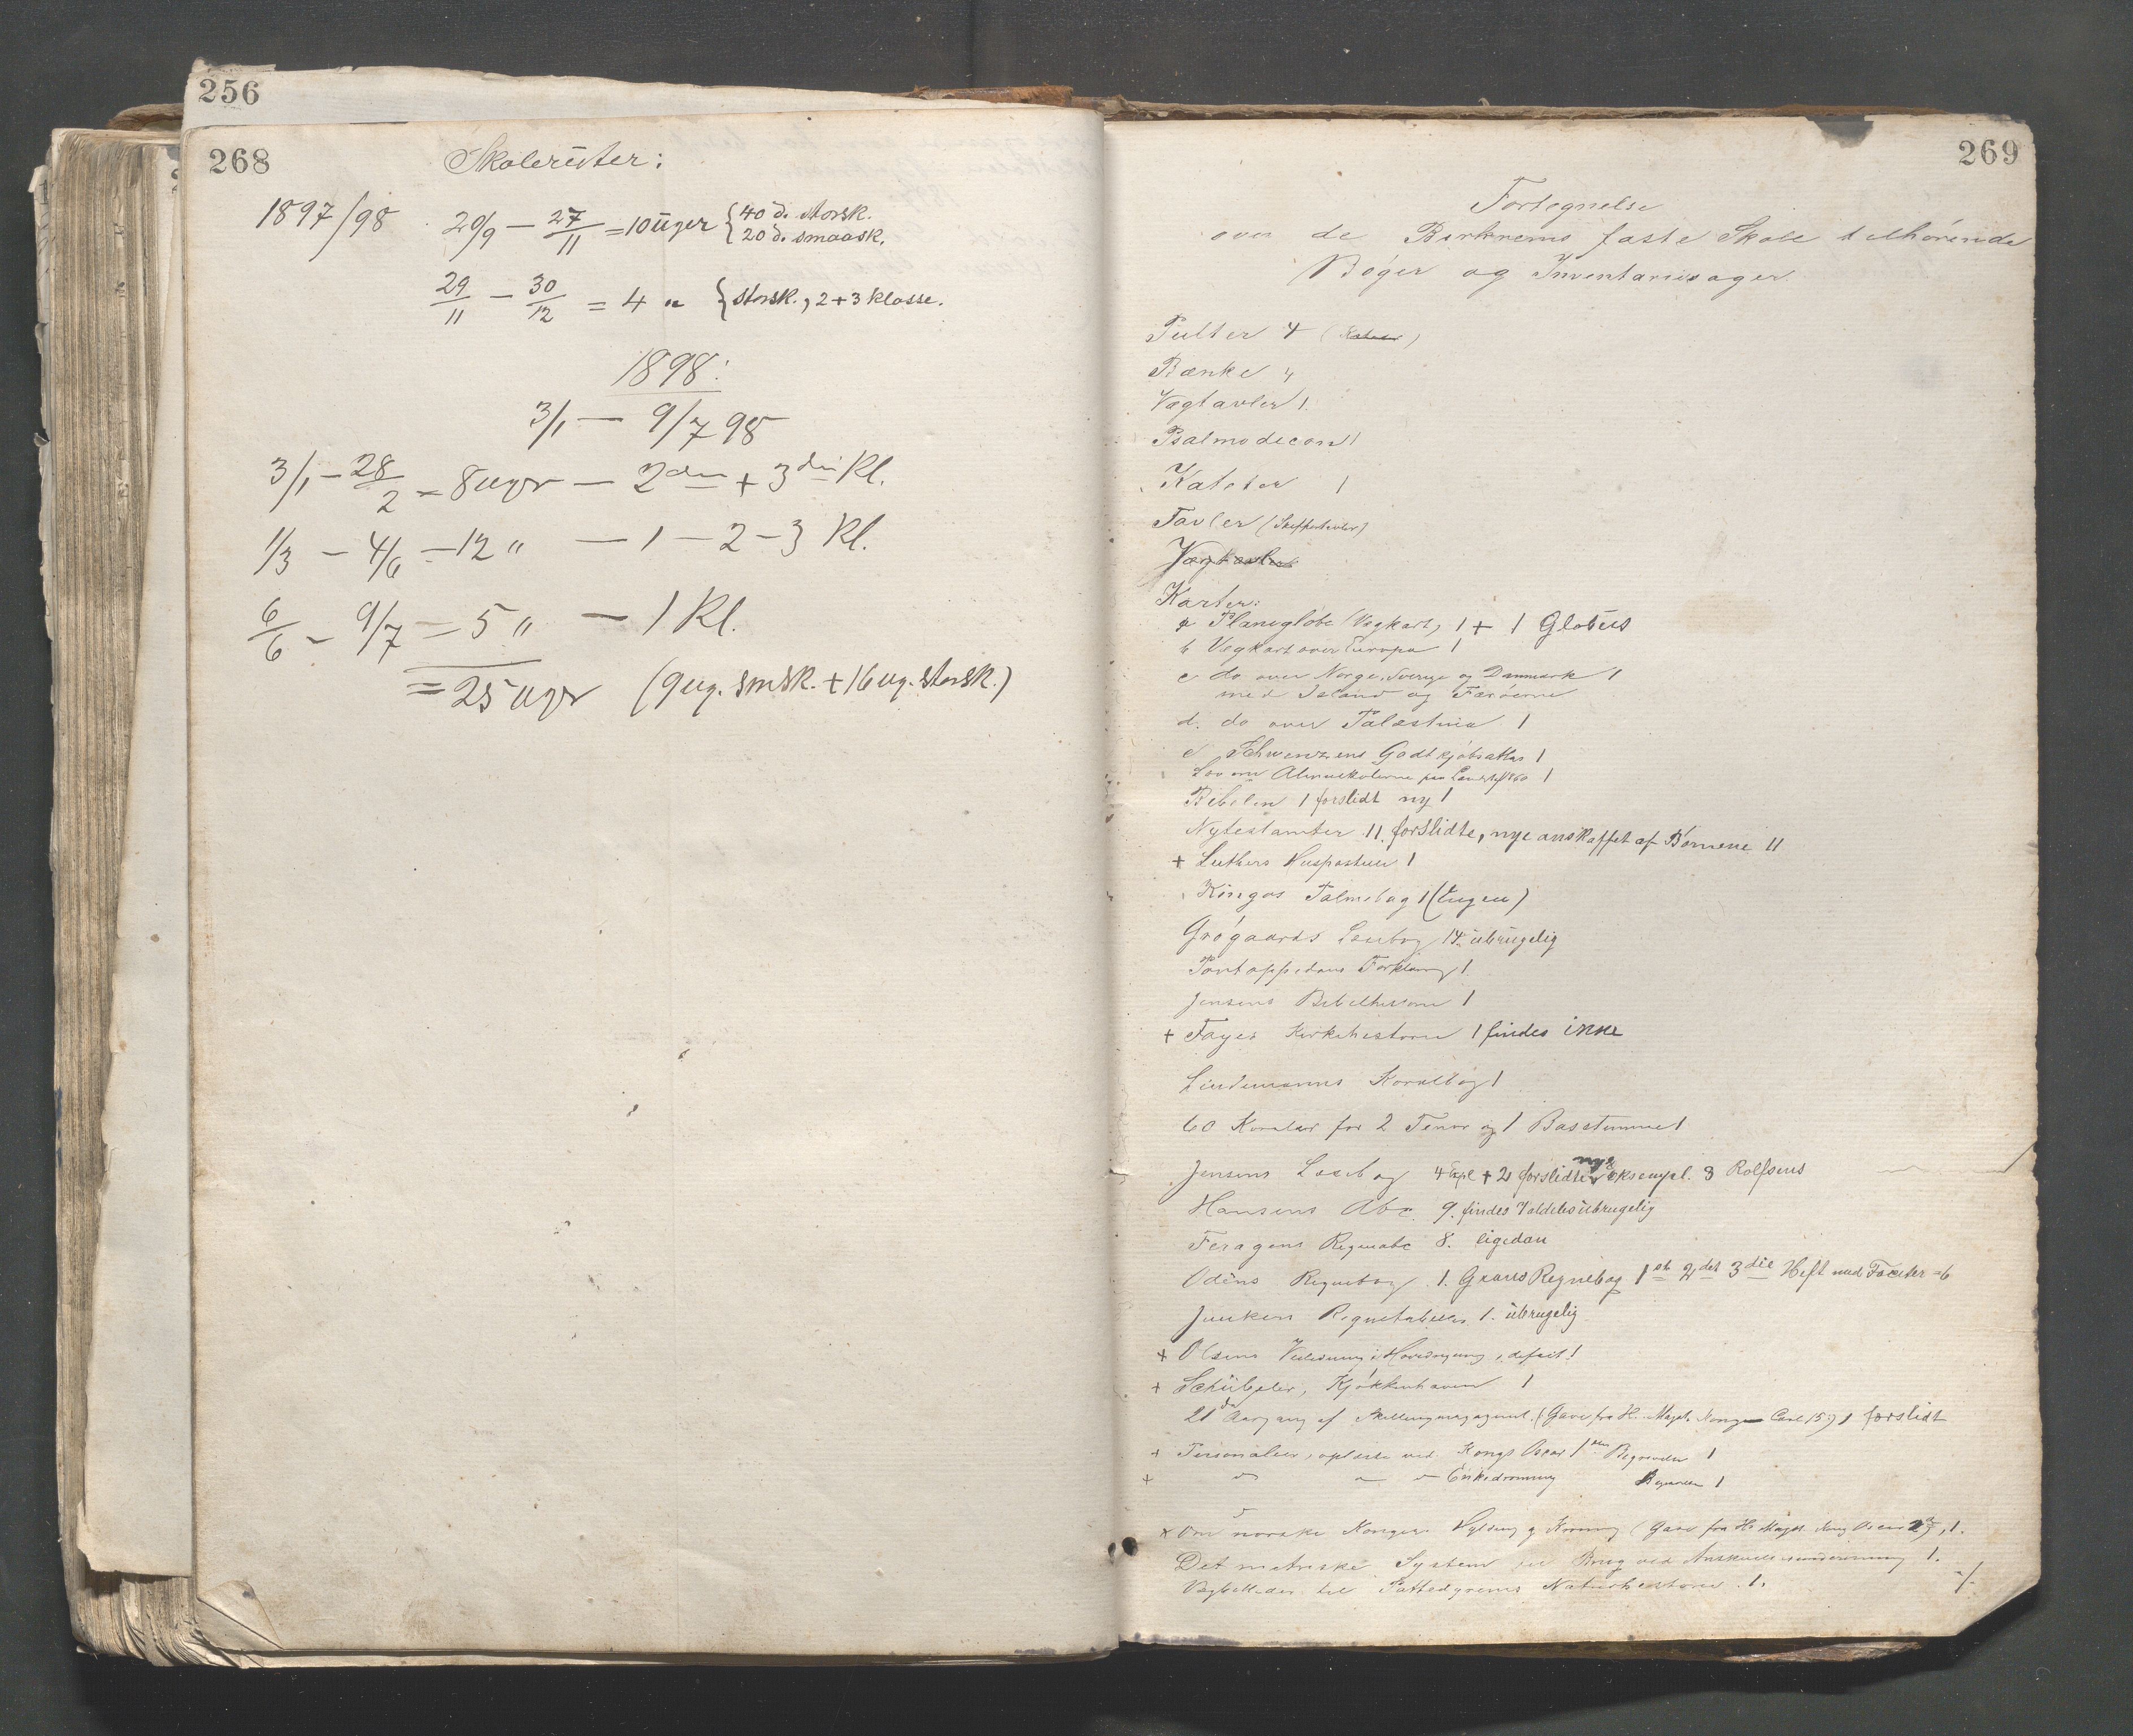 256
268
Skolerúter:
1897/98 20/9 — 27/11 = 10 úger { 40 d. storsk.
20 d. smaask.
29/11 — 30/12 = 4 " { storsk., 2 + 3 klasse.
1898:
3/1 — 9/7 98
3/1 — 28/2 = 8 uger — 2den + 3die Kl.
1/3 — 4/6 — 12 " — 1 — 2 — 3 Kl.
6/6 — 9/7 = 5 " — 1 Kl.
= 25 uger (9 ug. smsk. + 16 ug. storsk.)
269
Fortegnelse
over de Birkrems faste Skole tilhørende
Bøger og Inventariesager.
Pulter 4
Bænke 4
Vægtavler 1.
Psalmodicon 1
Kateter 1
Tavler (Skiffertavler)
Vægtavler
Karter:
a Planiglobe (Vægkart) 1 + 1 Globus
b Vægkart over Europa 1
c do over Norge, Sverige og Danmark 1
med Island og Færøerne
d. do over Palæstina 1
e Godtkjøbsatlas 1
Lov om Almueskolerne paa Landet 1860 1
Bibelen 1 forslidt ny 1
Nytestamter 11. forslidte, nye anskaffet af Børnene 11
+ Luthers Huspostill 1
Kingos Salmebog 1 (Ingen)
Grøgaards Læsebog 14. úbrúgelig
Pontoppidans Forklaring 1.
Jensens Bibelhistorie 1
+ Fayes Kirkehistorie 1 findes ikke
Lindemanns Koralbog 1
60 Koraler for 2 Tenor og 1 Basstemme 1
Jensens Læsebog 4 Expl + 2 forslidte nye eksempl. 3 Rolfsens
Hansens Abc. 9. findes úbrugelig
Feragens Regneabc 8. ligedan
Odins Regnebog 1. Regnebog 1ste 2det 3die Heft med Faciter = 6
Regnetabeller 1. úbrugelig
+ Olsens Veiledning i Havedyrkning, defect 1
+ Schübeler, Kjøkkenhaven 1
21de Aargang af Skillingmagazinet. (Gave fra H. Majst. Kong Carl 15) 1 forslidt
+ Personalier, oplæste ved Kong Oscar 1stes Begravelse 1
+ " " " Enkedronning Begravelse 1
x Om norske Kongers Hylding og Kroning (Gave fra H. Majst. Kong Oscar 2), 1.
Det metriske System til Brug ved Anskuelsesundervisning 1.
Vægbilleder til Pattedyrenes Naturhistorie. 1.